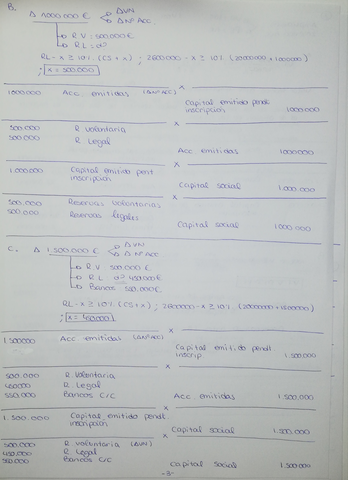 B.
Δ 1.000.000 € < ΔVN
ΔNº Acc
→ R V = 500.000 €
→ R L = d?
RL - x ≥ 10% (CS + x) ; 2600000 - x ≥ 10% (20000000 + 1000000)
; x = 500.000
x
1000.000 Acc emitidas (ΔNºACC)
Capital emitido pendt
inscripción 1000.000
x
500.000 R Voluntaria
500.000 R Legal
Acc emitidas 1000000
x
1.000.000 Capital emitido pent
inscripción
Capital social 1.000.000
x
500.000 Reservas voluntarias
500.000 Reservas legales
Capital social 1000.000
C. Δ 1.500.000 € < ΔVN
ΔNº ACC
→ R V 500.000 €
→ R L d? 450.000 €
→ Bancos 550.000 €
RL - x ≥ 10% (CS + x) ; 2600000 - x ≥ 10% (20000000 + 1500000)
; x = 450.000
x
1.500.000 Acc emitidas (ΔNºACC)
Capital emitido pendt
inscrip. 1.500.000
x
500.000 R Voluntaria
450.000 R Legal
550.000 Bancos C/C Acc emitidas 1.500.000
x
1.500.000 Capital emitido pendt.
inscripción
Capital social 1.500.000
x
500.000 R Voluntaria (ΔVN)
450.000 R Legal
550.000 Bancos C/C Capital social 1.500.000
-3-